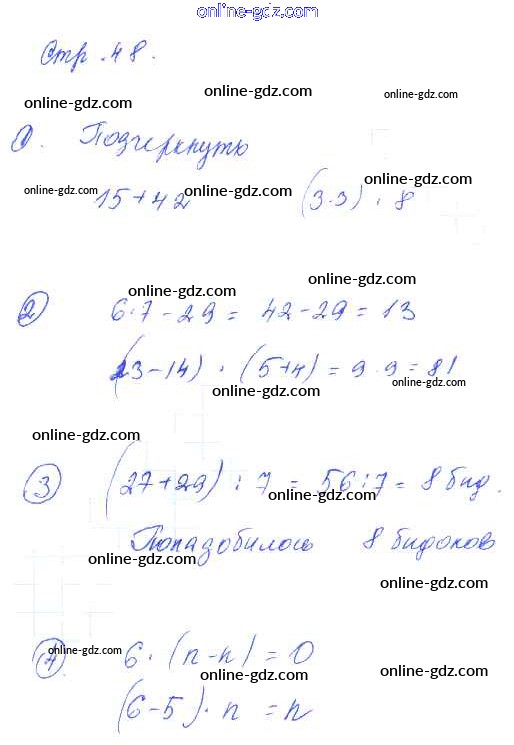 online-gdz.com
Стр. 48.
online-gdz.com online-gdz.com
1. Подчеркнуть
online-gdz.com
online-gdz.com 15+42 online-gdz.com (3·3) · 8
online-gdz.com
online-gdz.com
2 6·7-29 = 42-29 = 13
(23-14) · (5+4) = 9·9 = 81
online-gdz.com
online-gdz.com
online-gdz.com
3 (27+29) : 7 = 56:7 = 8 бид.
online-gdz.com
Понадобилось 8 бидонов
online-gdz.com
online-gdz.com
4 online-gdz.com 6 · (n-n) = 0
online-gdz.com online-gdz.com
(6-5) · n = n